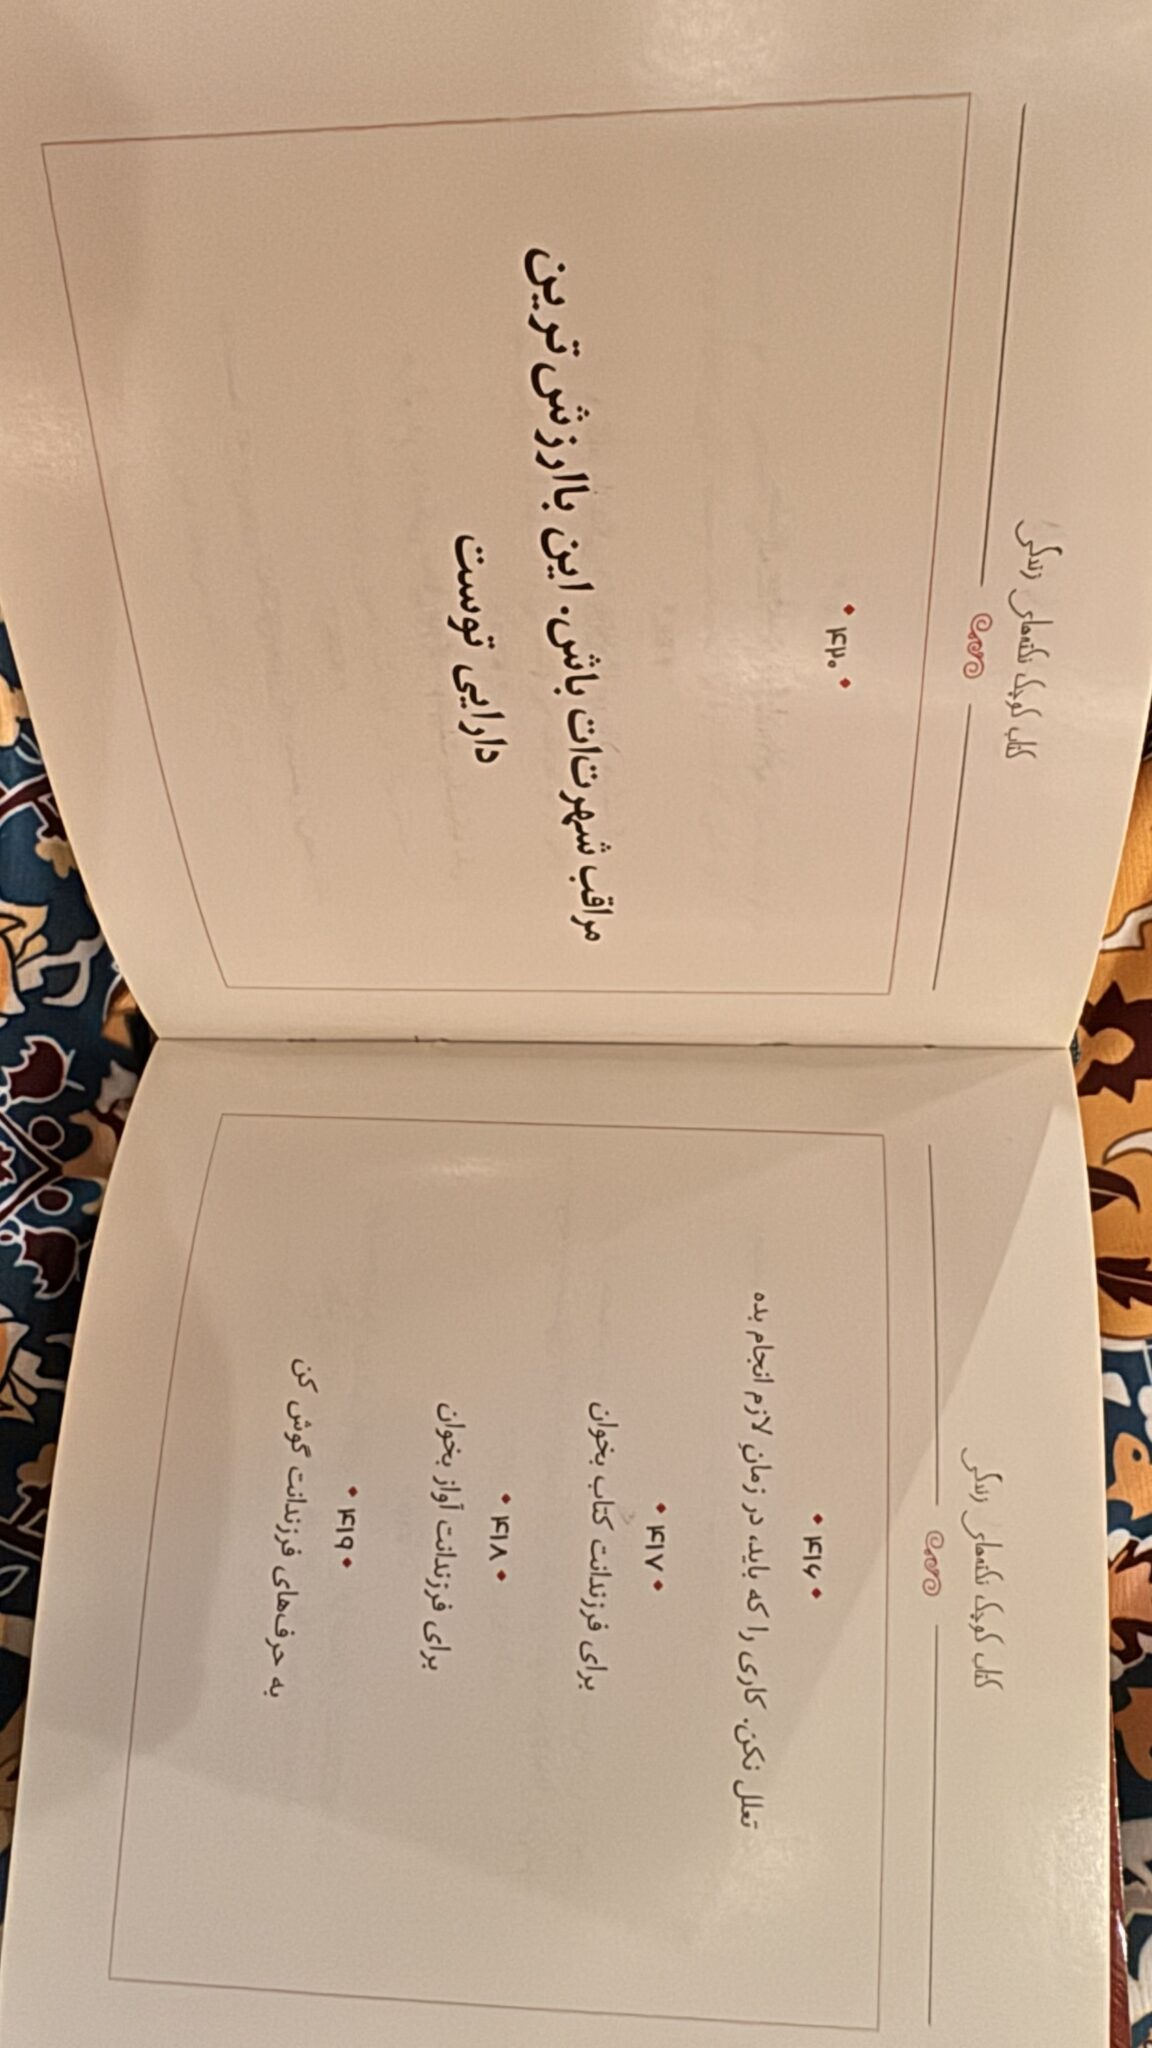 کتاب کوچک نکته‌های زندگی
۴۱۶
تعلل نکن. کاری را که باید، در زمانِ لازم انجام بده
۴۱۷
برای فرزندانت کتاب بخوان
۴۱۸
برای فرزندانت آواز بخوان
۴۱۹
به حرف‌های فرزندانت گوش کن
کتاب کوچک نکته‌های زندگی
۴۲۰
مراقب شهرت‌ات باش. این باارزش‌ترین
دارایی توست